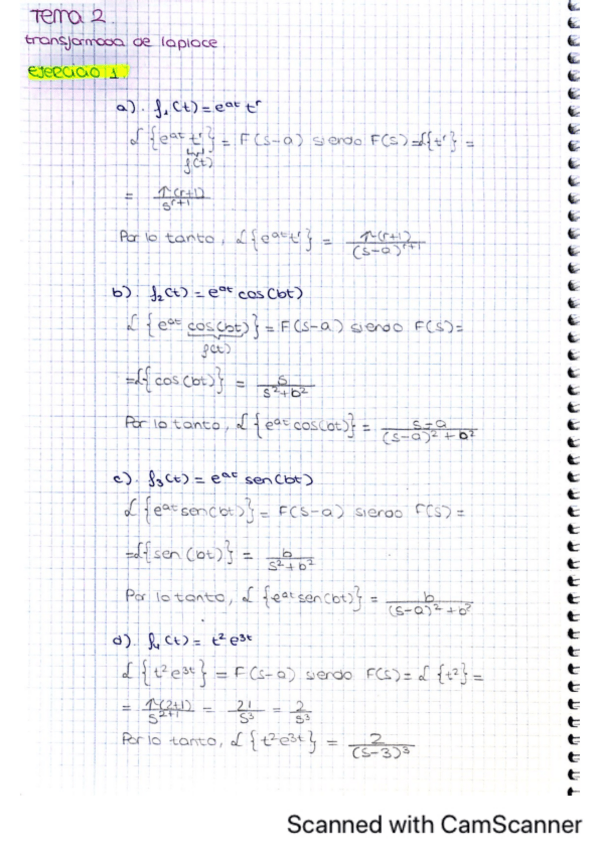 Tema 2.
transformada de laplace.
Ejercicio 1.
a). f₁(t) = e^{at} t^r
ℒ{e^{at} t^r} = F(s-a) siendo F(s) = ℒ{t^r} =
f(t)
= Γ(r+1) / s^{r+1}
Por lo tanto, ℒ{e^{at} t^r} = Γ(r+1) / (s-a)^{r+1}
b). f₂(t) = e^{at} cos(bt)
ℒ{e^{at} cos(bt)} = F(s-a) siendo F(s) =
f(t)
= ℒ{cos(bt)} = s / s²+b²
Por lo tanto, ℒ{e^{at} cos(bt)} = s-a / (s-a)² + b²
c). f₃(t) = e^{at} sen(bt)
ℒ{e^{at} sen(bt)} = F(s-a) siendo F(s) =
= ℒ{sen(bt)} = b / s²+b²
Por lo tanto, ℒ{e^{at} sen(bt)} = b / (s-a)² + b²
d). f₄(t) = t² e^{3t}
ℒ{t² e^{3t}} = F(s-a) siendo F(s) = ℒ{t²} =
= Γ(2+1) / s^{2+1} = 2! / s³ = 2 / s³
Por lo tanto, ℒ{t² e^{3t}} = 2 / (s-3)³
Scanned with CamScanner